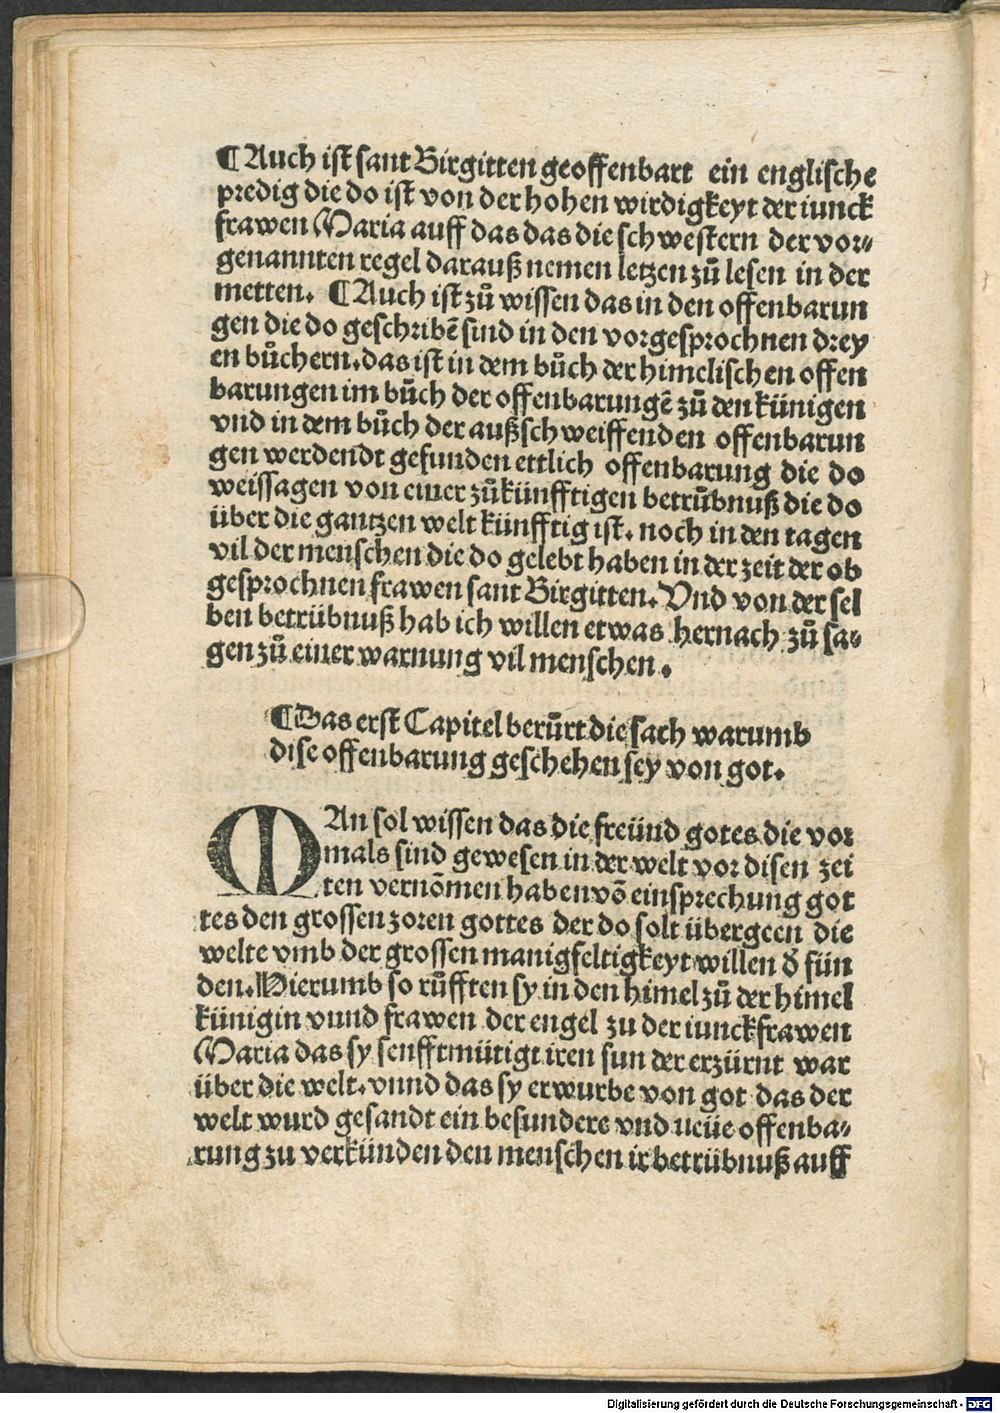 ¶ Auch ist sant Birgitten geoffenbart ein englische
predig die do ist von der hohen wirdigkeyt der iunck
frawen Maria auff das das die schwestern der vor⸗
genannten regel darauß nemen letzen zů lesen in der
metten. ¶ Auch ist zů wissen das in den offenbarun
gen die do geschribē sind in den vorgesprochnen drey
en bůchern. das ist in dem bůch der himelischen offen
barungen im bůch der offenbarungē zů den künigen
vnd in dem bůch der außschweiffenden offenbarun
gen werdendt gefunden ettlich offenbarung die do
weissagen von einer zůkünfftigen betrůbnuß die do
über die gantzen welt künfftig ist. noch in den tagen
vil der menschen die do gelebt haben in der zeit der ob
gesprochnen frawen sant Birgitten. Vnd von der sel
ben betrübnuß hab ich willen etwas hernach zů sa⸗
gen zů einer warnung vil menschen.
¶ Das erst Capitel berůrt die sach warumb
dise offenbarung geschehen sey von got.
MAn sol wissen das die freünd gotes die vor
mals sind gewesen in der welt vor disen zei
ten vernōmen haben vō einsprechung got
tes den grossen zoren gottes der do solt übergeen die
welte vmb der grossen manigfeltigkeyt willen d̕ sün
den. Hierumb so růfften sy in den himel zů der himel
künigin vnnd frawen der engel zu der iunckfrawen
Maria das sy senfftmütigt iren sun der erzürnt war
über die welt. vnnd das sy erwurbe von got das der
welt wurd gesandt ein besundere vnd neüe offenba⸗
rung zu verkünden den menschen ir betrübnuß auff
Digitalisierung gefördert durch die Deutsche Forschungsgemeinschaft - DFG